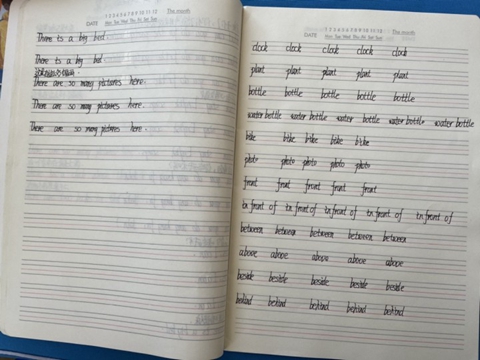 1 2 3 4 5 6 7 8 9 10 11 12 The month
DATE Mon Tue Wed Thu Fri Sat Sun
There is a big bed.
There is a big bed.
There are so many pictures here.
There are so many pictures here.
There are so many pictures here.
1 2 3 4 5 6 7 8 9 10 11 12 The month
DATE Mon Tue Wed Thu Fri Sat Sun
clock clock clock clock clock
plant plant plant plant plant
bottle bottle bottle bottle bottle
water bottle water bottle water bottle water bottle water bottle
bike bike bike bike bike
photo photo photo photo photo
front front front front front
in front of in front of in front of in front of in front of
between between between between between
above above above above above
beside beside beside beside beside
behind behind behind behind behind